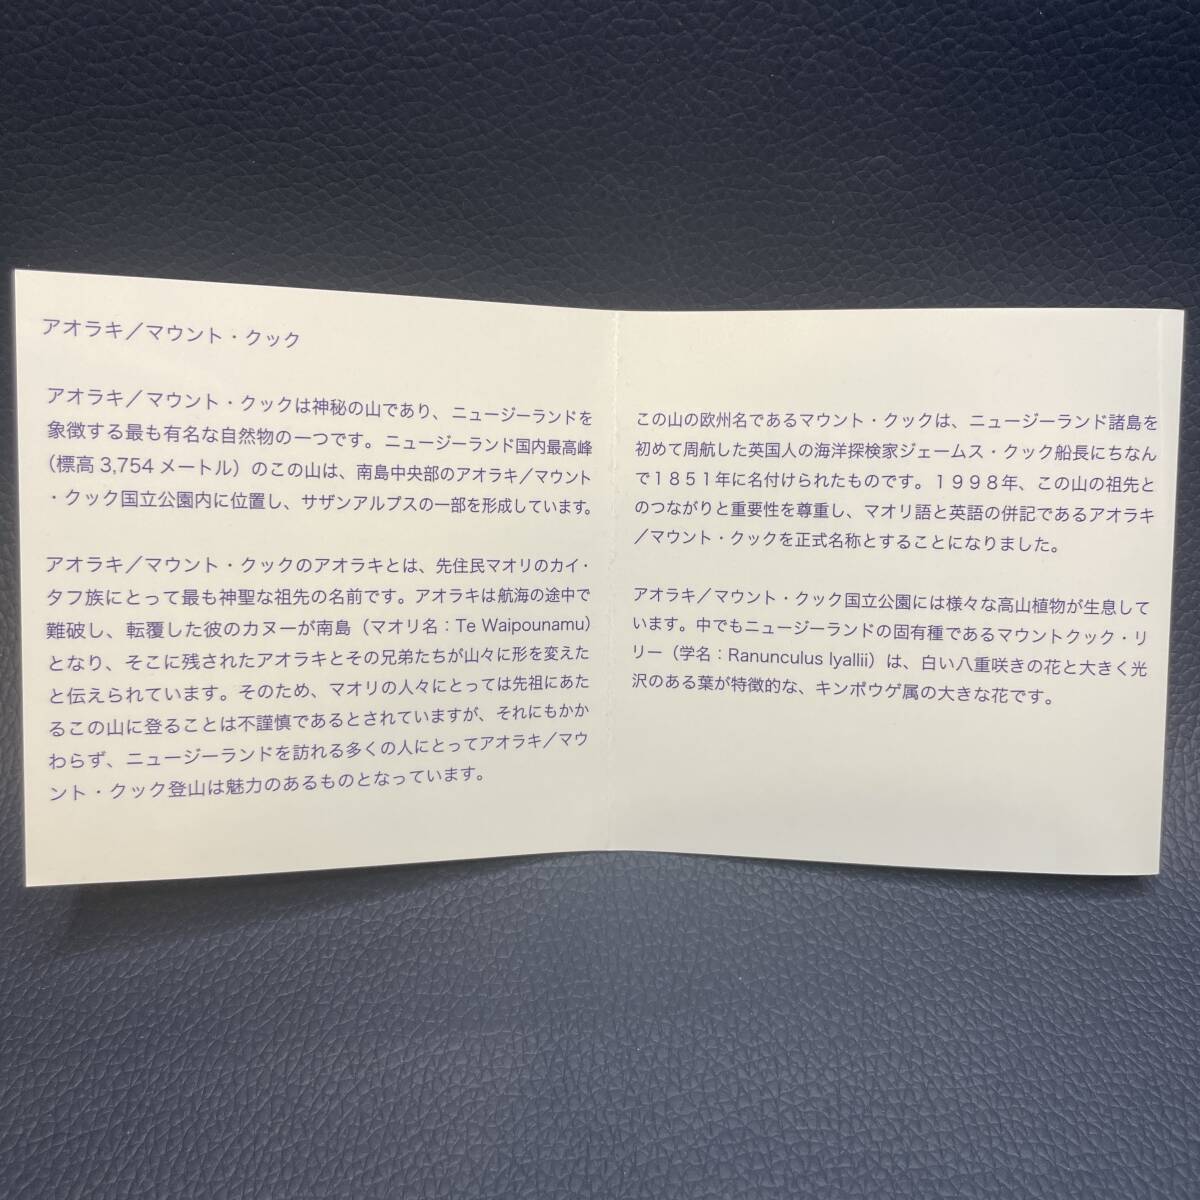 アオラキ／マウント・クック
アオラキ／マウント・クックは神秘の山であり、ニュージーランドを
象徴する最も有名な自然物の一つです。ニュージーランド国内最高峰
（標高 3,754 メートル）のこの山は、南島中央部のアオラキ／マウント
・クック国立公園内に位置し、サザンアルプスの一部を形成しています。
アオラキ／マウント・クックのアオラキとは、先住民マオリのカイ・
タフ族にとって最も神聖な祖先の名前です。アオラキは航海の途中で
難破し、転覆した彼のカヌーが南島（マオリ名：Te Waipounamu）
となり、そこに残されたアオラキとその兄弟たちが山々に形を変えた
と伝えられています。そのため、マオリの人々にとっては先祖にあた
るこの山に登ることは不謹慎であるとされていますが、それにもかか
わらず、ニュージーランドを訪れる多くの人にとってアオラキ／マウ
ント・クック登山は魅力のあるものとなっています。
この山の欧州名であるマウント・クックは、ニュージーランド諸島を
初めて周航した英国人の海洋探検家ジェームス・クック船長にちなん
で１８５１年に名付けられたものです。１９９８年、この山の祖先と
のつながりと重要性を尊重し、マオリ語と英語の併記であるアオラキ
／マウント・クックを正式名称とすることになりました。
アオラキ／マウント・クック国立公園には様々な高山植物が生息して
います。中でもニュージーランドの固有種であるマウントクック・リ
リー（学名：Ranunculus lyallii）は、白い八重咲きの花と大きく光
沢のある葉が特徴的な、キンポウゲ属の大きな花です。